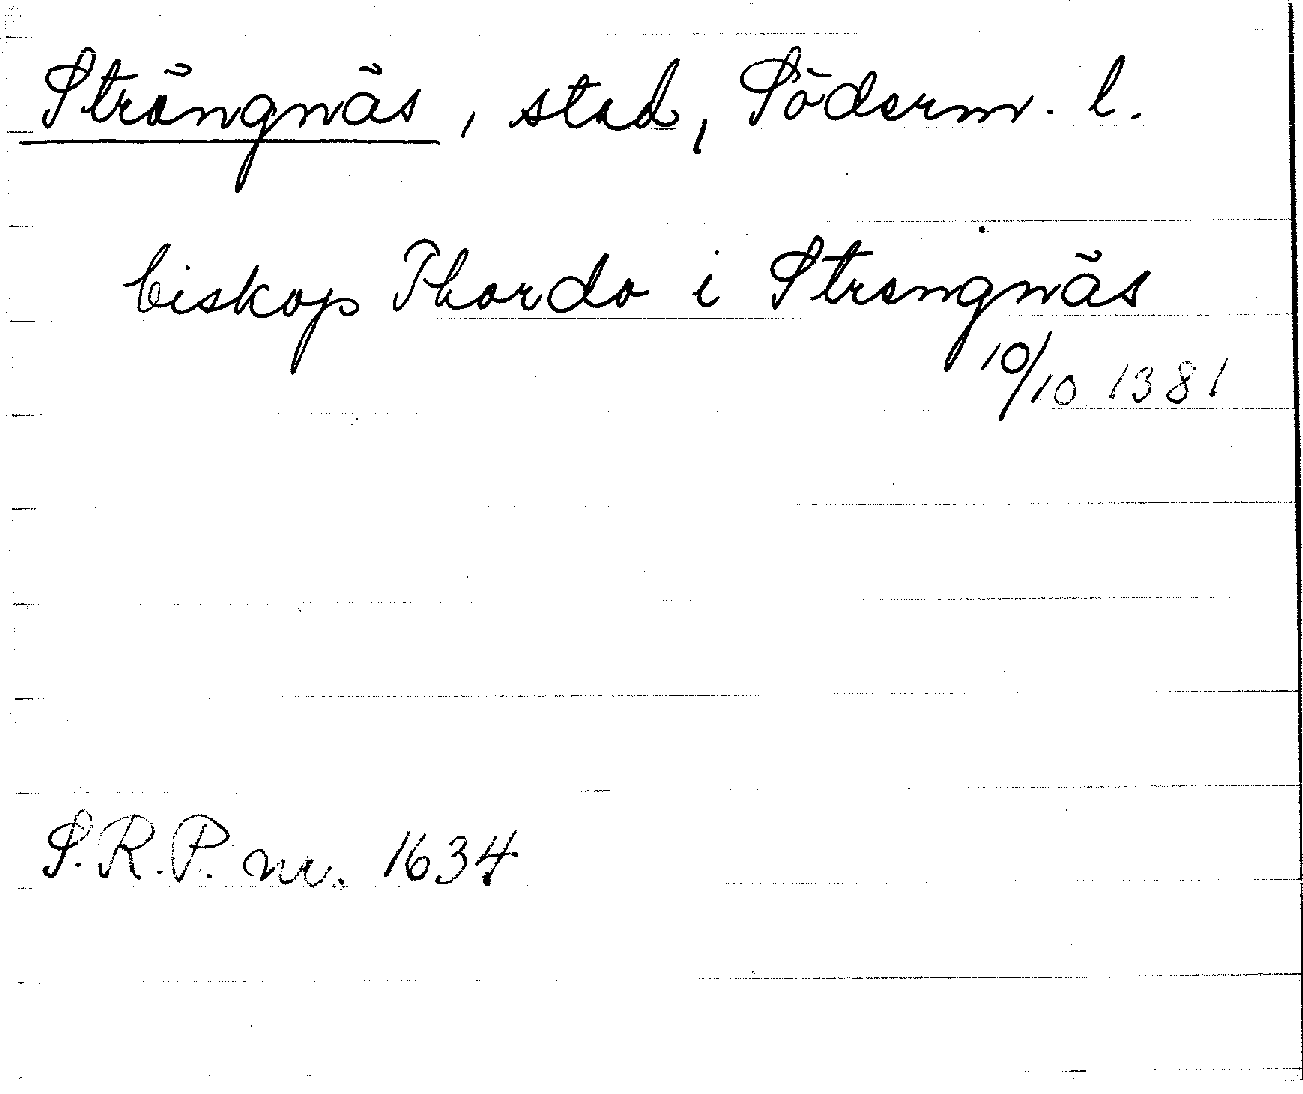 Strängnäs, stad, Söderm. l.
biskop Thordo i Strengnäs
10/10 1381
S.R.P. nr. 1634